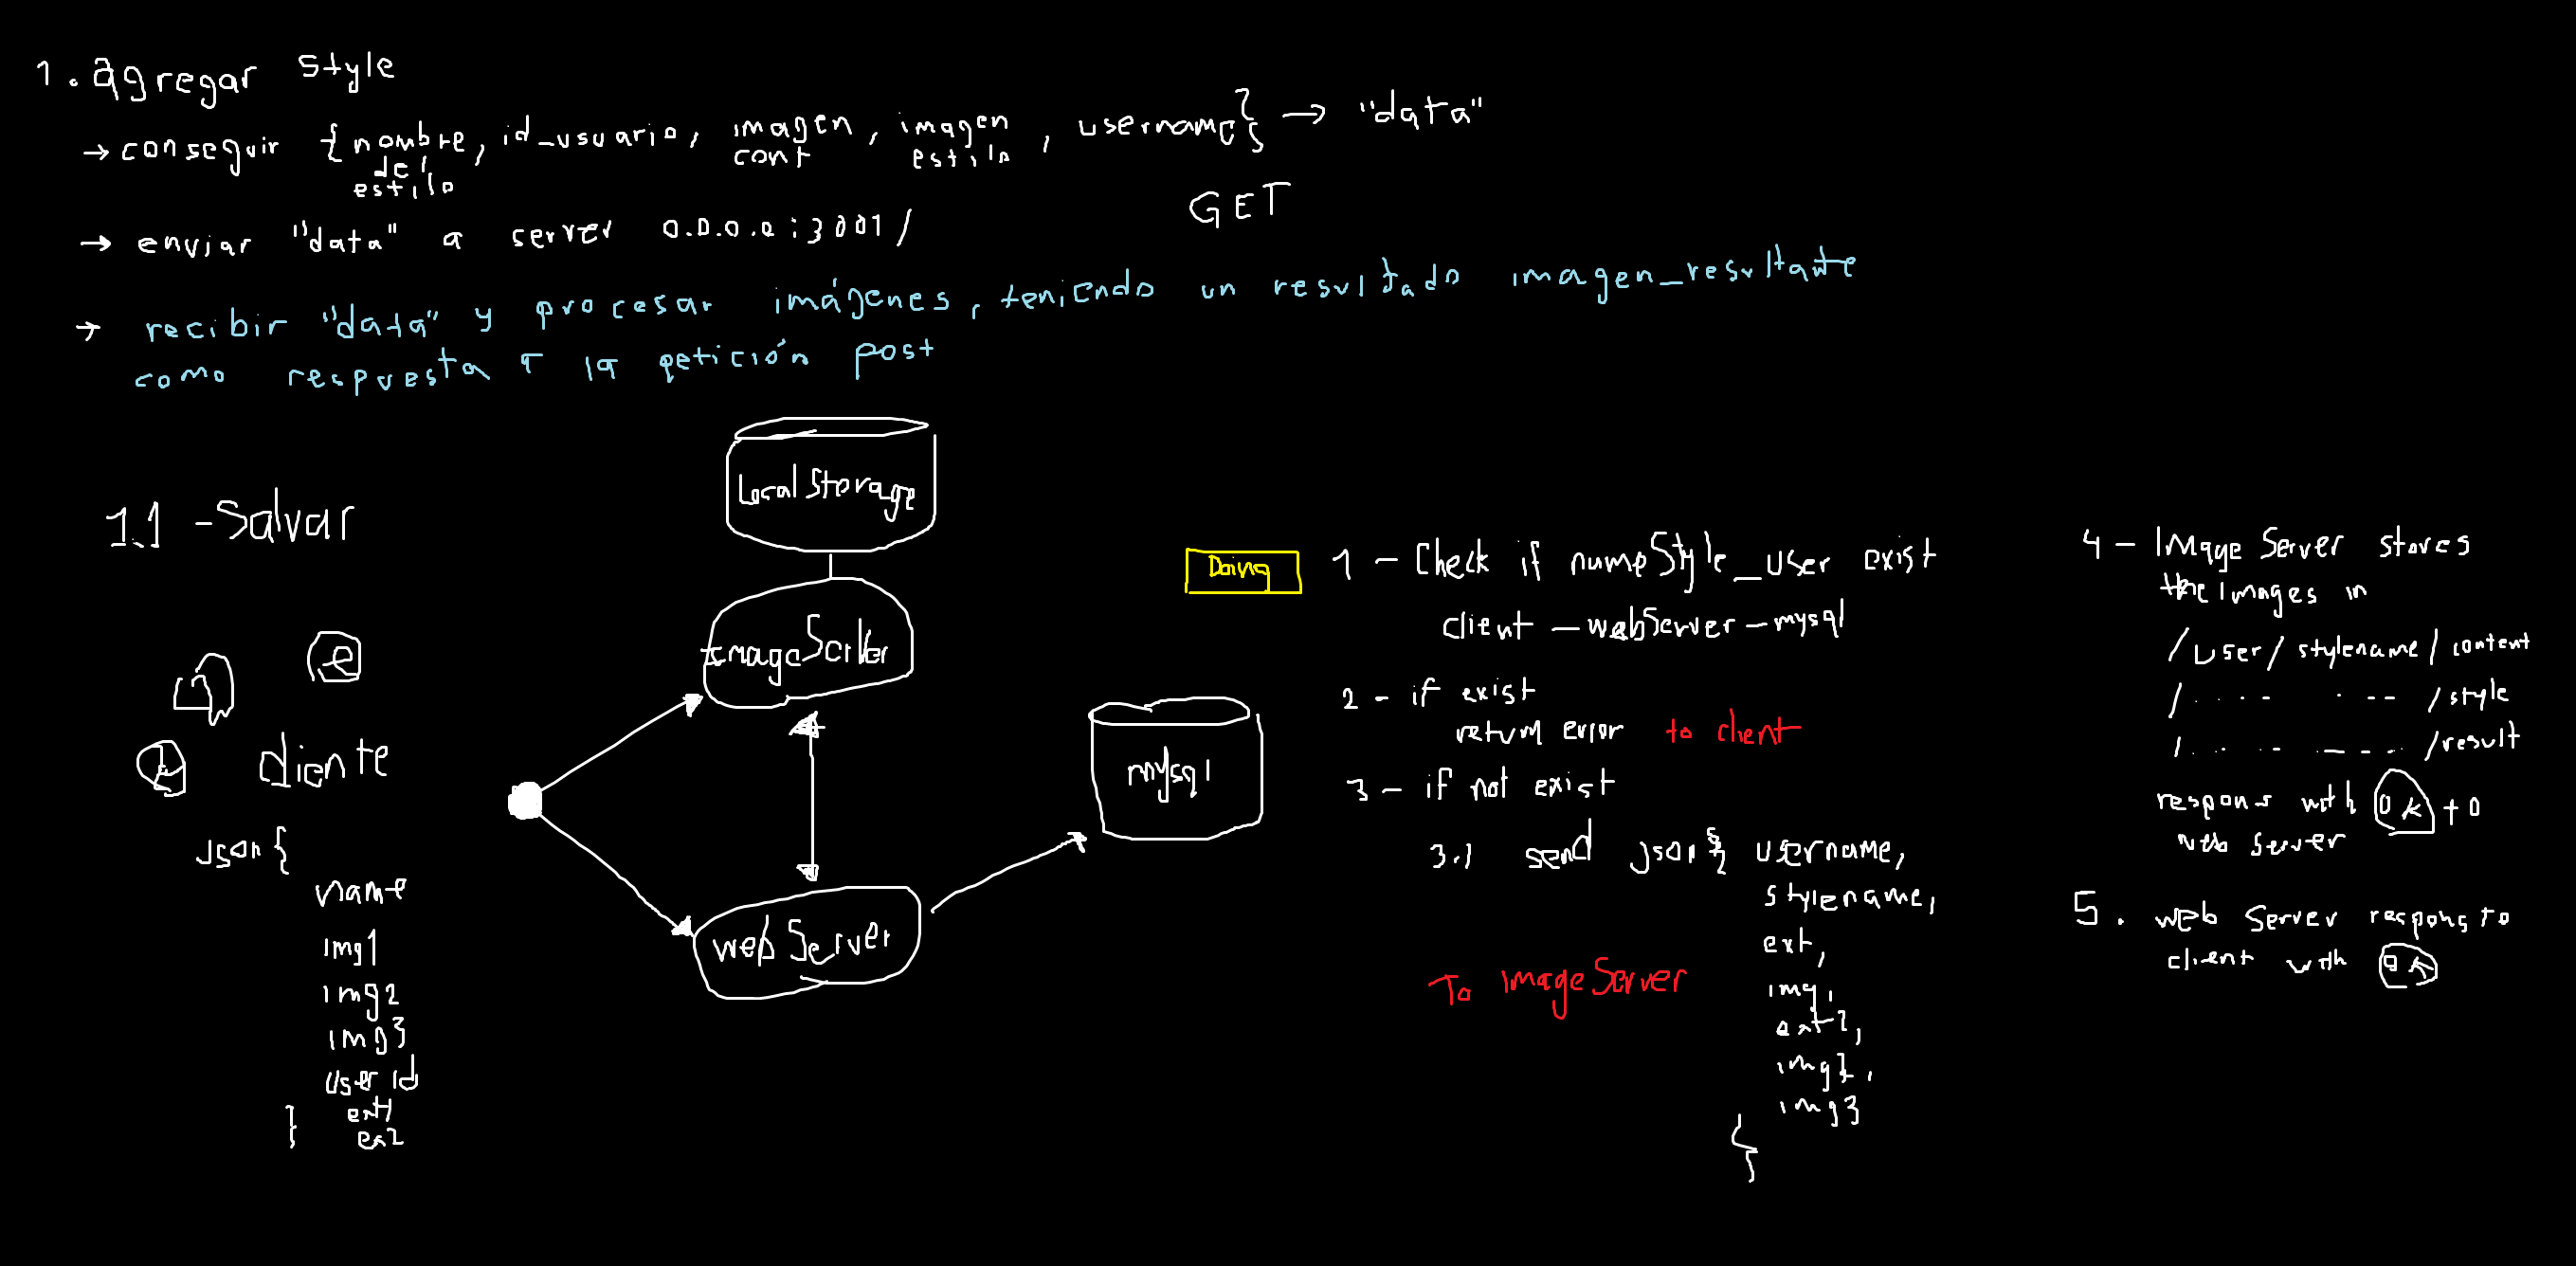 1. agregar style
→ conseguir {nombre del estilo, id_usuario, imagen cont, imagen estilo, username} → "data"
→ enviar "data" a server 0.0.0.0:3001/
GET
→ recibir "data" y procesar imágenes, teniendo un resultado imagen_resultante
como respuesta a la petición post
1.1 - Salvar
Local Storage
mysql
web Server
e
cliente
json{
name
img1
img2
img3
user id
} ext1
ex2
Doing
1 - Check if numeStyle_user exist
client - webServer - mysql
2 - if exist
return error to client
3 - if not exist
3.1 send json{ username,
stylename,
ext,
img,
ext2,
img2,
img3
}
To imageServer
4 - Image Server stores
the images in
/user/stylename/content
/.... .-- /style
/..... ---.. /result
respons with ok to
web server
5. web Server respons to
client with ok